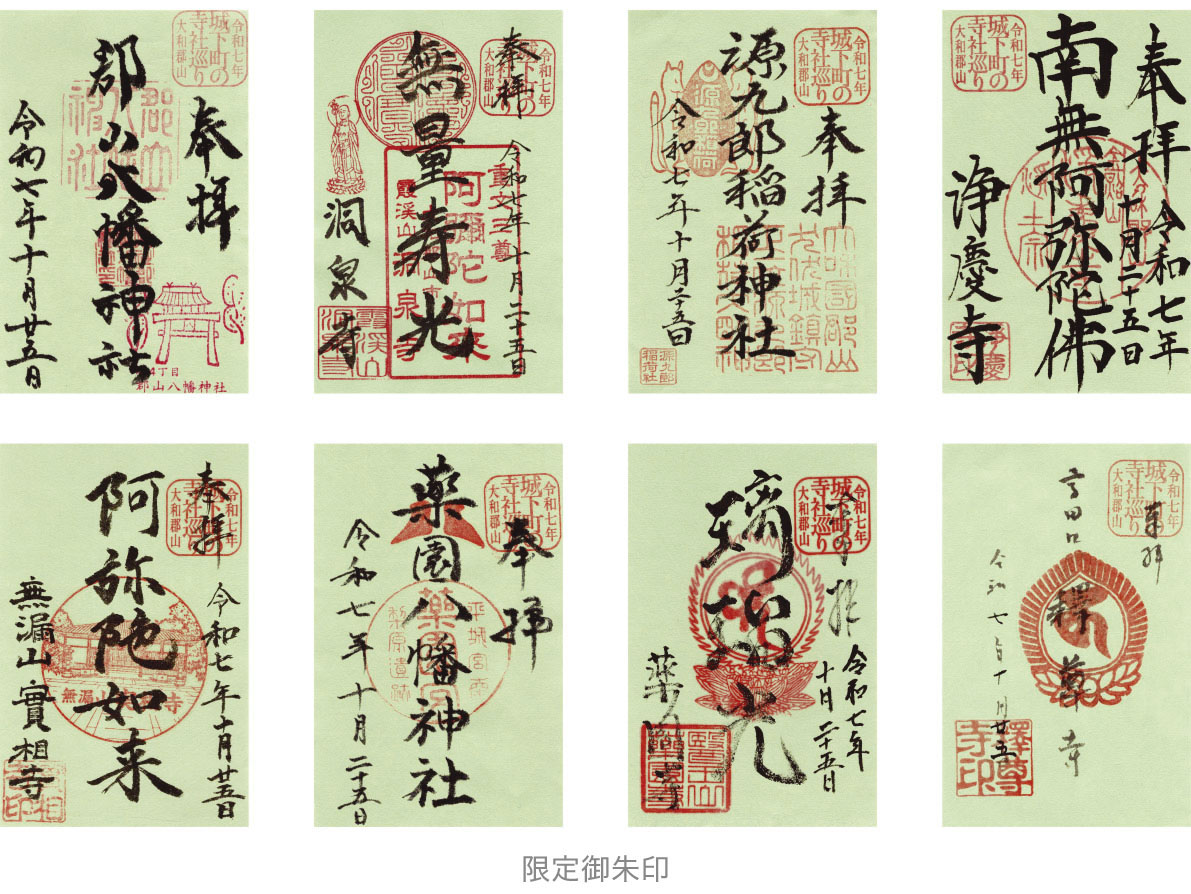 奉拝
郡山八幡神社
令和七年十月廿五日
4丁目
郡山八幡神社
令和七年
城下町の
寺社巡り
大和郡山
奉拝
令和七年十月二十五日
無量寿光
洞泉寺
重文三尊
阿彌陀如来
霞渓山洞泉寺
令和七年
城下町の
寺社巡り
大和郡山
奉拝
源九郎稲荷神社
令和七年十月二五日
源九郎
稲荷社
令和七年
城下町の
寺社巡り
大和郡山
奉拝
令和七年
十月二十五日
南無阿弥陀佛
浄慶寺
令和七年
城下町の
寺社巡り
大和郡山
奉拝
令和七年十月廿五日
阿弥陀如来
無漏山實相寺
令和七年
城下町の
寺社巡り
大和郡山
奉拝
薬園八幡神社
令和七年十月二十五日
平城宮南
梨原遺跡
令和七年
城下町の
寺社巡り
大和郡山
令和七年
十月二十五日
瑠璃光
令和七年
城下町の
寺社巡り
大和郡山
奉拝
高田口
釋尊寺
令和七年十月廿五
釋尊
寺印
令和七年
城下町の
寺社巡り
大和郡山
限定御朱印